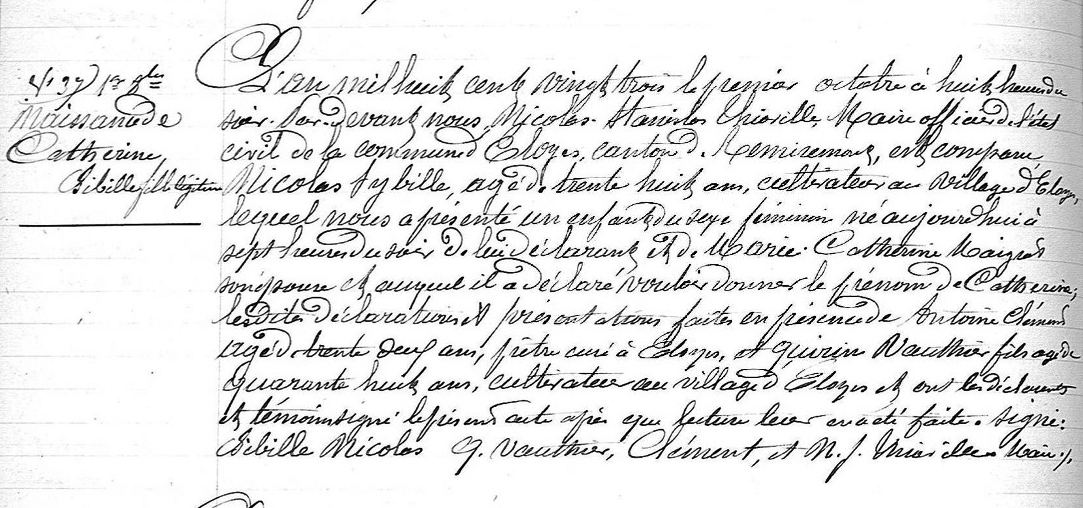 N° 37) 1er 8bre
Naissance de
Catherine,
Sibille fille légitime
L'an mil huit cent vingt trois le premier octobre à huit heures du
soir. Par devant nous, Nicolas Stanislas Maire officier de l'état
civil de la commune d'Eloyes, canton de Remiremont, est comparu
Nicolas Sybille, agé de trente huit ans, cultivateur au village d'Eloyes,
lequel nous a présenté un enfant du sexe féminin né aujourd'hui à
sept heures du soir de lui déclarant et de Marie Catherine
son épouse et auquel il a déclaré vouloir donner le prénom de Catherine;
lesdites déclarations et présentations faites en présence de Antoine Clément
agé de trente deux ans, prêtre curé à Eloyes, et Quirin Vauthier fils agé de
quarante huit ans, cultivateur au village d'Eloyes et ont les déclarants
et témoins signé le présent acte après que lecture leur en a été faite. signé:
Sibille Nicolas Q. Vauthier, Clément, et N. S. Maire.